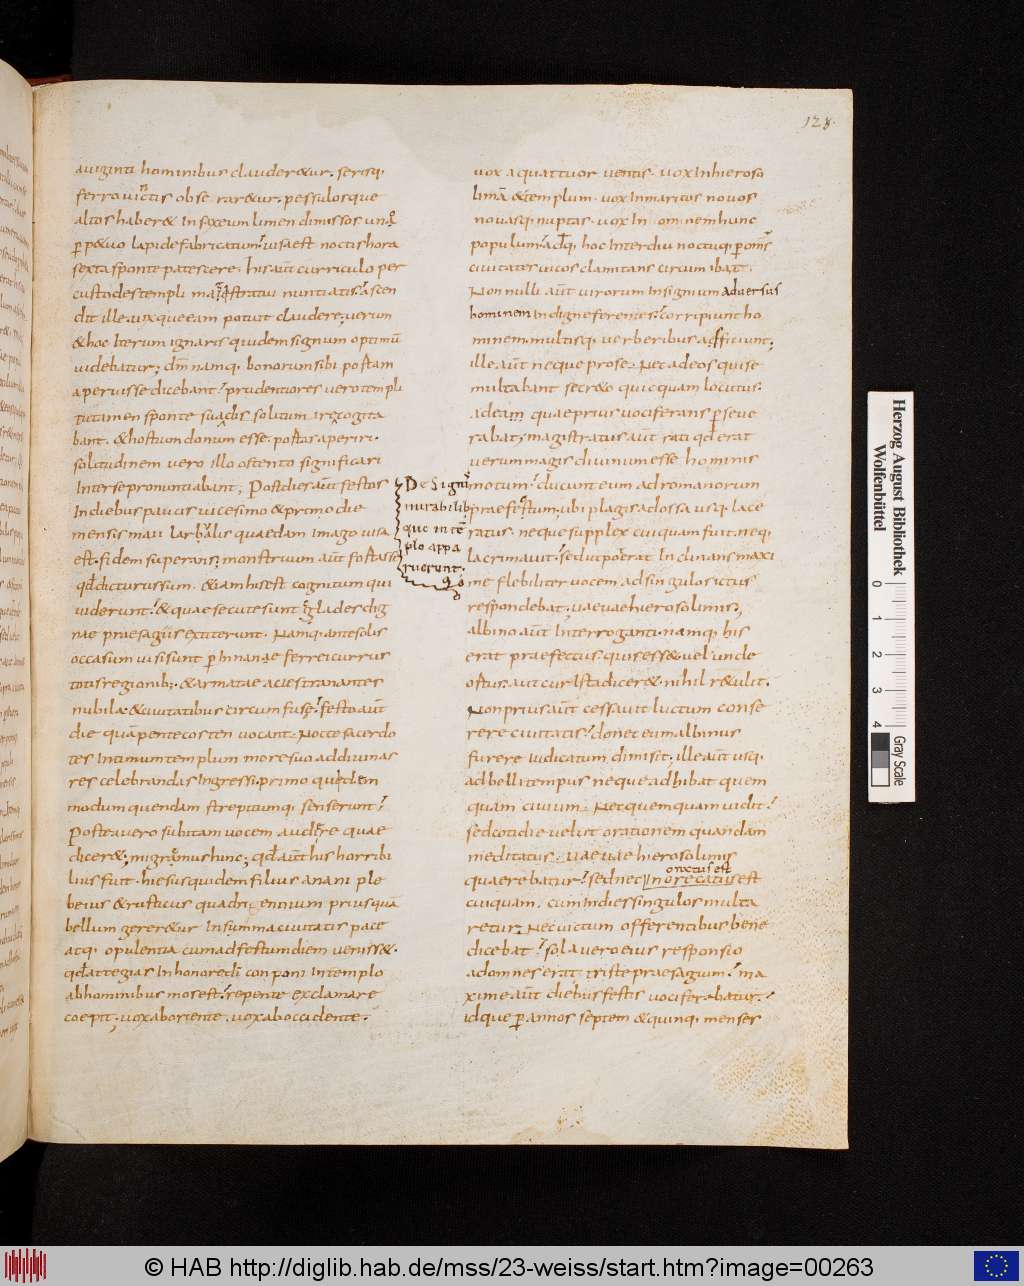 128.
auiginti hominibus clauderetur. serisq;
ferro uinctis obserraretur. pessulosque
altos haberet In saxeum limen dimissos unoq;
ꝑpetuo lapide fabricatum. uisa est noctis hora
sexta sponte patescere. hisaūt curriculo per
custodes templi magistratui nuntiatis. ascen
dit ille. uixque eam potuit claudere; uerum
& hoc Iterum ignaris quidem signum optimū
uidebatur; dm̄ namq; bonorum sibi portam
aperuisse dicebant. prudentiores uero templi
tutamen sponte sua solutum recogita
bant. & hostium donum esse portas aperiri.
solitudinem uero illo ostento significari
Inter se pronuntiabant; Post dies aūt festos
In diebus paucis uicesimo & primo die
mensis maii Iar quaedam imago uisa
est. fidem superans; monstruum aūt fortasse
qđ dicturus sum. & iam his est cognitum qui
uiderunt. & quae secute sunt clades dig
nae praesagiis extiterunt. Namq; ante solis
occasum uisi sunt ꝑ Inania ferrei currus
totis regionib;. & armatae acies tranantes
nubila. & ciuitatibus circumfuse. festo aūt
die quam pentecosten uocant. Nocte sacerdo
tes Intimum templum more suo ad diuinas
res celebrandas Ingressi. primo quidem
motum quendam strepitumq; senserunt.
Postea uero subitam uocem audire quae
diceret; migramus hinc; qđ aūt his horribi
lius fuit. hiesus quidem filius anani ple
beius & rusticus quadriennium priusquā
bellum gereretur In summa ciuitatis pace
atq; opulentia cum ad festum diem uenisset.
qđ attegias In honore dī conponi In templo
ab hominibus mos est. repente exclamare
coepit. uox ab oriente. uox ab occidente.
De signis
mirabilib;
que in tē
plo appa
ruerunt.
uox a quattuor uentis. uox In hieroso
limā & templum. uox In maritos nouos
nouasq; nuptas. uox In omnem hunc
populum. adq; hoc Interdiu noctuq; ꝑ om̄s
ciuitates uicos clamitans circumibat.
Non nulli aūt uirorum Insignium aduersus
hominem Indigne ferentes. corripiunt ho
minem. multisq; uerberibus afficiunt;
ille aūt neque pro se. Nec ad eos qui se
multabant secreto quicquam locutus.
ad eam quae prius uociferans ꝑseue
rabat; magistratus aūt rati qđ erat
uerum magis diuinum esse hominis
motum. ducunt eum ad romanorum
praefectum; ubi plagis ad ossa usq; lace
ratus. neque supplex cuiquam fuit. neq;
lacrimauit. sed ut poterat Inclinans maxi
me flebiliter uocem ad singulos ictus
respondebat; uae uae hierosolimis;
albino aūt Interroganti. namq; his
erat praefectus quis esset uel unde
ortus aut cur Ista diceret. nihil retulit.
Non prius aūt cessauit luctum conse
rere ciuitatis. donec eum albinus
furere Iudicatum dimisit. ille aūt usq;
ad belli tempus neque adhibat quem
quam ciuium. Nec quemquam uidit.
sed cotidie uelut orationem quandam
meditatus. uae uae hierosolimis
onxtus est
quaerebatur. sed nec norecatus est
cuiquam. cum In dies singulos multa
retur. Nec uictum offerentibus bene
dicebat. sola uero eius responsio
ad omnes erat triste praesagium. ma
xime aūt diebus festis uociferabatur.
idque ꝑ annos septem & quinq; menses
Herzog August Bibliothek
Wolfenbüttel
0 1 2 3 4
Gray Scale
© HAB http://diglib.hab.de/mss/23-weiss/start.htm?image=00263